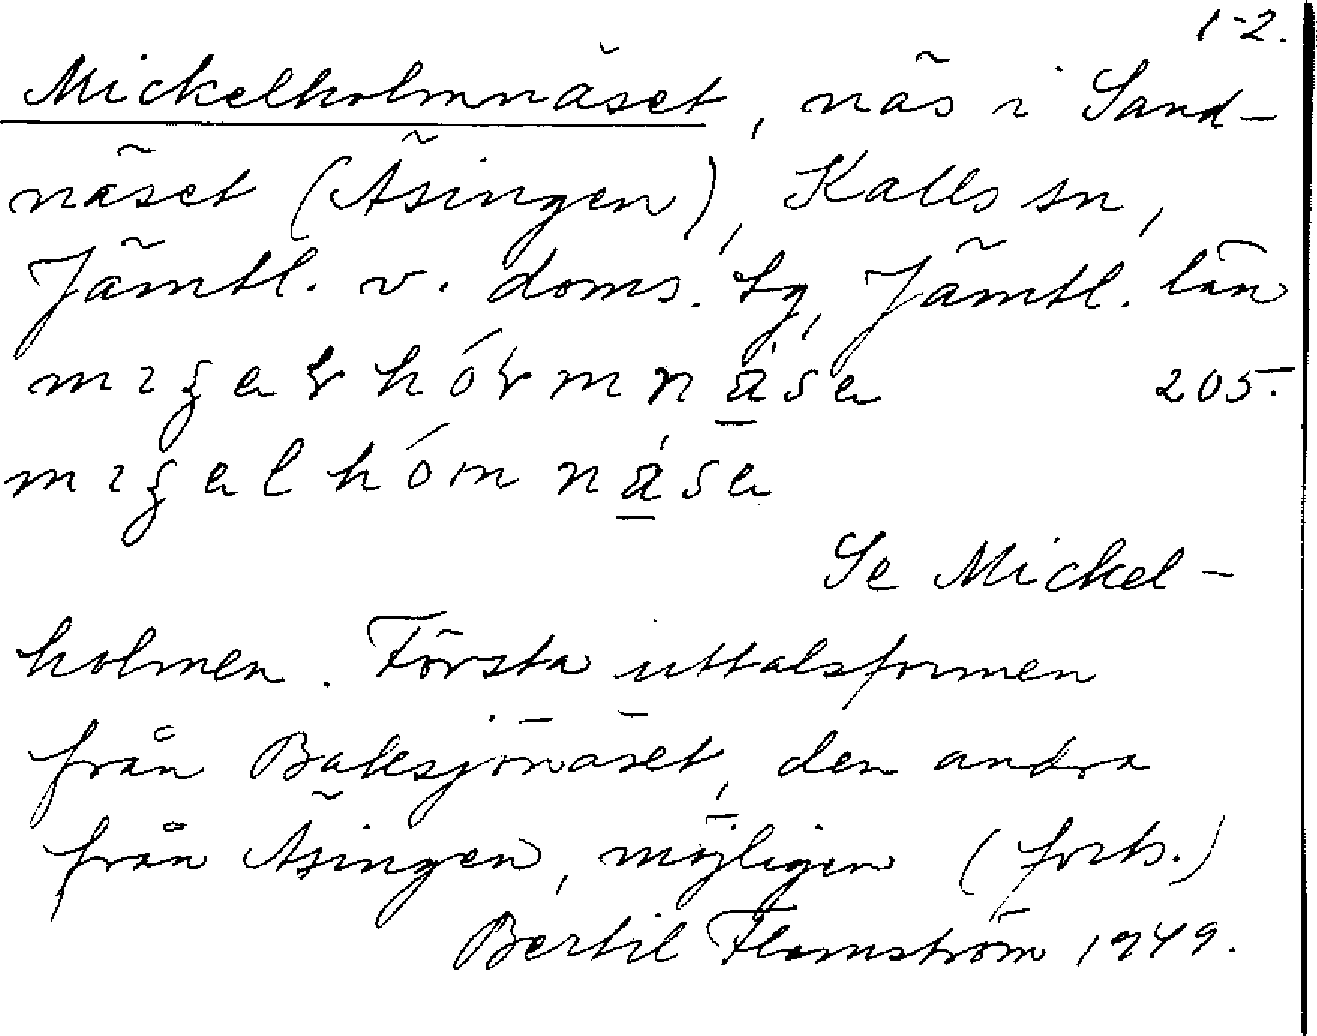 1-2.
Mickelholmnäset, näs i Sand-
näset (Äsingen), Kalls sn,
Jämtl. v. doms. tg, Jämtl. län
205.
Se Mickel-
holmen. Första uttalsformen
från Baksjönäset, den andra
från Äsingen, möjligen (forts.)
Bertil Flemström 1949.